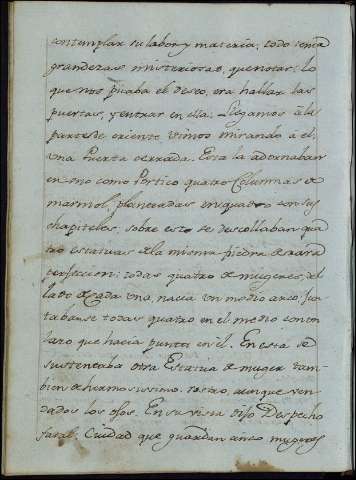 contemplar su labor, y materia, todo tenia
grandezas misteriosas, que notar: lo
que nos picaba el deseo, era hallar las
puertas, y entrar en ella: Llegamos â la
parte de oriente vimos mirando à el,
una Puerta cerrada. Esta la adornaban
en uno como Portico quatro Columnas de
marmol, planteadas en quadro con sus
chapiteles, sobre esto se descollaban qua
tro estatuas de la misma piedra de rara
perfeccion: todas quatro de mugeres, del
lado de Cada una nacia un medio arco, jun
tabanse todas quatro en el medio con un
lazo que hacia punto en èl. En esta se
sustentaba otra Estatua de muger tam-
bien de hermosissimo rostro, aunque ven
dados los ojos. En su vista dijo Despecho
fatal: Ciudad que guardan cinco mugeres